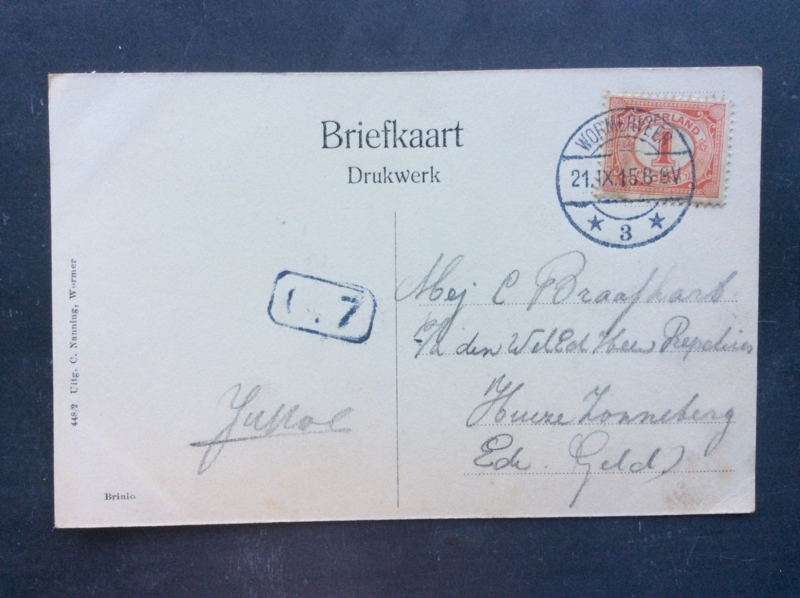 Briefkaart
Drukwerk
NEDERLAND
1
WORMERVEER
21.IX.15 8-9V
3
7
Mej C Braafhart
p/a den WelEd Heer
Huize Zonneberg
Ede. Geld)
448/2 Uitg. C. Nanning, Wormer
Brinio